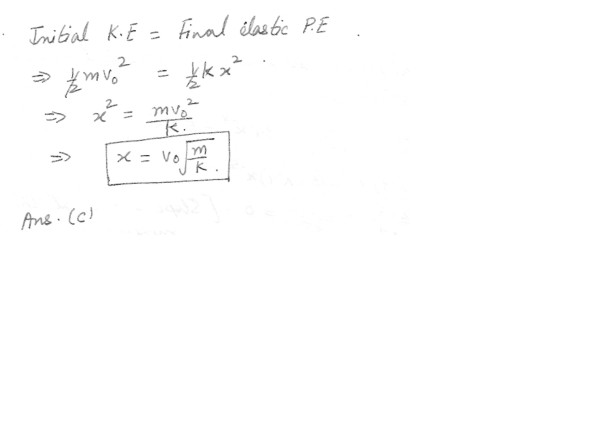 . Initial K.E = Final elastic P.E .
⇒ 1/2 mv₀² = 1/2 kx²
⇒ x² = mv₀²/k.
⇒ x = v₀√(m/k).
Ans. (c)